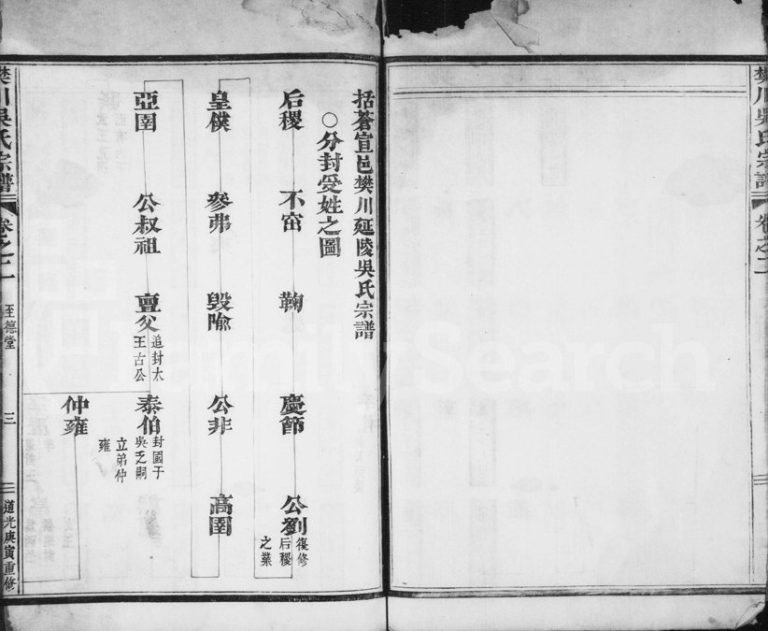 樊川吳氏宗譜
卷之二
括蒼宣邑樊川延陵吳氏宗譜
○分封受姓之圖
后稷 不窋 鞠 慶節 公劉 復修后稷之業
皇僕 參弗 毀隃 公非 高圉
亞圉 公叔祖 亶父 追封太王古公 泰伯 封國于吳乏嗣立弟仲雍
仲雍
樊川吳氏宗譜
卷之二
至德堂
三
道光庚寅重修
FamilySearch